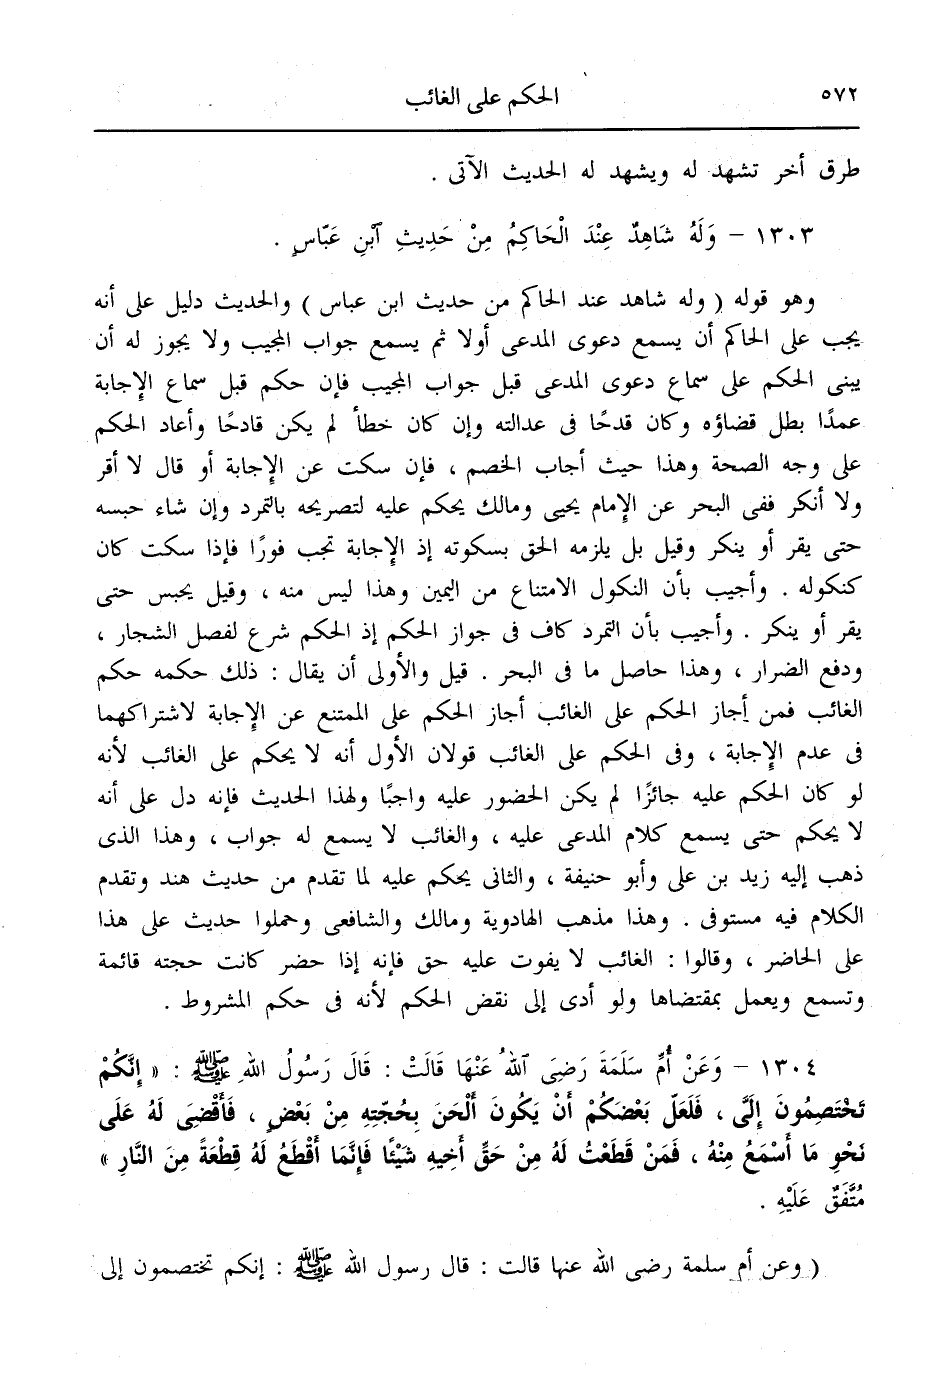 ٥٧٢
الحكم على الغائب
طرق أخر تشهد له ويشهد له الحديث الآتى .
١٣٠٣ – وَلَهُ شَاهِدٌ عِنْدَ الْحَاكِمُ مِنْ حَدِيثِ آبْنِ عَبّاسٍ .
وهو قوله ( وله شاهد عند الحاكم من حديث ابن عباس ) والحديث دليل على أنه
يجب على الحاكم أن يسمع دعوى المدعى أولا ثم يسمع جواب المجيب ولا يجوز له أن
يبنى الحكم على سماع دعوى المدعى قبل جواب المجيب فإن حكم قبل سماع الإجابة
عمدًا بطل قضاؤه وكان قدحًا فى عدالته وإن كان خطأ لم يكن قادحًا وأعاد الحكم
على وجه الصحة وهذا حيث أجاب الخصم ، فإن سكت عن الإجابة أو قال لا أقر
ولا أنكر ففى البحر عن الإمام يحيى ومالك يحكم عليه لتصريحه بالتمرد وإن شاء حبسه
حتى يقر أو ينكر وقيل بل يلزمه الحق بسكوته إذ الإجابة تجب فورًا فإذا سكت كان
كنكوله . وأجيب بأن النكول الامتناع من اليمين وهذا ليس منه ، وقيل يحبس حتى
يقر أو ينكر . وأجيب بأن التمرد كاف فى جواز الحكم إذ الحكم شرع لفصل الشجار ،
ودفع الضرار ، وهذا حاصل ما فى البحر . قيل والأولى أن يقال : ذلك حكمه حكم
الغائب فمن أجاز الحكم على الغائب أجاز الحكم على الممتنع عن الإجابة لاشتراكهما
فى عدم الإجابة ، وفى الحكم على الغائب قولان الأول أنه لا يحكم على الغائب لأنه
لو كان الحكم عليه جائزًا لم يكن الحضور عليه واجبًا ولهذا الحديث فإنه دل على أنه
لا يحكم حتى يسمع كلام المدعى عليه ، والغائب لا يسمع له جواب ، وهذا الذى
ذهب إليه زيد بن على وأبو حنيفة ، والثانى يحكم عليه لما تقدم من حديث هند وتقدم
الكلام فيه مستوفى . وهذا مذهب الهادوية ومالك والشافعى وحملوا حديث على هذا
على الحاضر ، وقالوا : الغائب لا يفوت عليه حق فإنه إذا حضر كانت حجته قائمة
وتسمع ويعمل بمقتضاها ولو أدى إلى نقض الحكم لأنه فى حكم المشروط .
١٣٠٤ – وَعَنْ أُمِّ سَلَمَةَ رَضِىَ آللهُ عَنْهَا قَالَتْ : قَالَ رَسُولُ اللهِ ﷺ : « إِنَّكُمْ
تَخْتَصِمُونَ إِلَىَّ ، فَلَعَلّ بَعْضَكُمْ أَنْ يَكُونَ أَلْحَنَ بِحُجّتِهِ مِنْ بَعْضٍ ، فَأَقْضِىَ لَهُ عَلَى
نَحْوِ مَا أَسْمَعُ مِنْهُ ، فَمَنْ قَطَعْتُ لَهُ مِنْ حَقِّ أَخِيهِ شَيْئًا فَإِنَّمَا أَقْطَعُ لَهُ قِطْعَةً مِنَ النَّارِ »
مُتَّفَقٌ عَلَيْهِ .
( وعن أم سلمة رضى الله عنها قالت : قال رسول الله ﷺ : إنكم تختصمون إلى